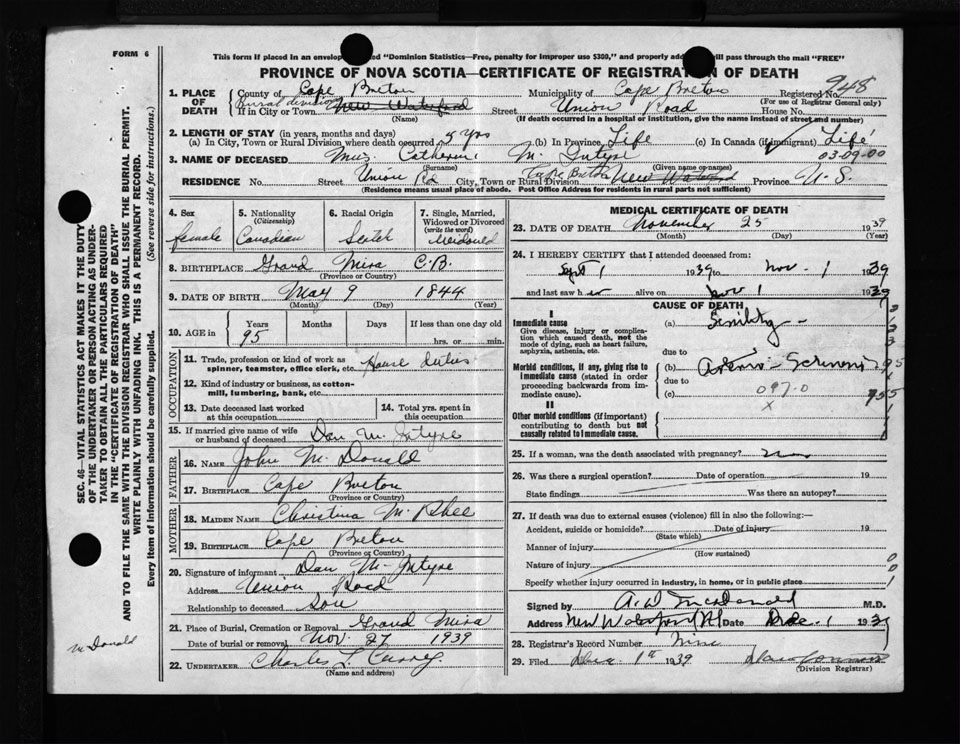 FORM 6
This form if placed in an envelop ed "Dominion Statistics—Free, penalty for improper use $300," and properly add will pass through the mail "FREE"
PROVINCE OF NOVA SCOTIA—CERTIFICATE OF REGISTRAT N OF DEATH
948
1. PLACE OF DEATH
County of Cape Breton Municipality of Cape Breton Registered No.
(For use of Registrar General only)
Rural division
If in City or Town New Waterford Street Union Road House No.
(Name) (If death occurred in a hospital or institution, give the name instead of street and number)
2. LENGTH OF STAY (in years, months and days)
(a) In City, Town or Rural Division where death occurred 5 yrs (b) In Province Life (c) In Canada (if immigrant) Life
03-09-00
3. NAME OF DECEASED Mrs. Catherine McIntyre
(Surname) (Given name or names)
RESIDENCE No. Street Union Rd City, Town or Rural Division Cape Breton New Waterford Province N. S.
(Residence means usual place of abode. Post Office Address for residents in rural parts not sufficient)
4. Sex female
5. Nationality (Citizenship) Canadian
6. Racial Origin
7. Single, Married, Widowed or Divorced (write the word) Widowed
8. BIRTHPLACE Grand Mira C.B.
(Province or Country)
9. DATE OF BIRTH May 9 1844
(Month) (Day) (Year)
10. AGE in Years 95 Months Days If less than one day old hrs. or min.
OCCUPATION
11. Trade, profession or kind of work as spinner, teamster, office clerk, etc. House duties
12. Kind of industry or business, as cotton-mill, lumbering, bank, etc.
13. Date deceased last worked at this occupation
14. Total yrs. spent in this occupation
15. If married give name of wife or husband of deceased Dan McIntyre
FATHER
16. NAME John McDonald
17. BIRTHPLACE Cape Breton
(Province or Country)
MOTHER
18. MAIDEN NAME Christina McPhee
19. BIRTHPLACE Cape Breton
(Province or Country)
20. Signature of informant Dan McIntyre
Address Union Road
Relationship to deceased Son
21. Place of Burial, Cremation or Removal Grand Mira
Date of burial or removal Nov. 27 1939
22. UNDERTAKER Charles L. Curry
(Name and address)
MEDICAL CERTIFICATE OF DEATH
23. DATE OF DEATH November 25 1939
(Month) (Day) (Year)
24. I HEREBY CERTIFY that I attended deceased from:
Sept 1 1939 to Nov. 1 1939
and last saw her alive on Nov 1 1939
CAUSE OF DEATH
I
Immediate cause
Give disease, injury or complication which caused death, not the mode of dying, such as heart failure, asphyxia, asthenia, etc.
(a) Senility
due to
Morbid conditions, if any, giving rise to immediate cause (stated in order proceeding backwards from immediate cause).
(b) Arterio-Sclerosis
due to
(c) 097-0
x
II
Other morbid conditions (if important) contributing to death but not causally related to immediate cause.
25. If a woman, was the death associated with pregnancy?
26. Was there a surgical operation? Date of operation 19
State findings Was there an autopsy?
27. If death was due to external causes (violence) fill in also the following:—
Accident, suicide or homicide? Date of injury 19
(State which)
Manner of injury
(How sustained)
Nature of injury
Specify whether injury occurred in industry, in home, or in public place
Signed by A.W. McDonald M.D.
Address New Waterford NS Date Dec. 1 1939
28. Registrar's Record Number Nine
29. Filed Dec. 1st 1939
(Division Registrar)
SEC. 46—VITAL STATISTICS ACT MAKES IT THE DUTY
OF THE UNDERTAKER OR PERSON ACTING AS UNDER-
TAKER TO OBTAIN ALL THE PARTICULARS REQUIRED
IN THE "CERTIFICATE OF REGISTRATION OF DEATH"
AND TO FILE THE SAME WITH THE DIVISION REGISTRAR WHO SHALL ISSUE THE BURIAL PERMIT.
WRITE PLAINLY WITH UNFADING INK. THIS IS A PERMANENT RECORD.
Every item of information should be carefully supplied. (See reverse side for instructions.)
McDonald